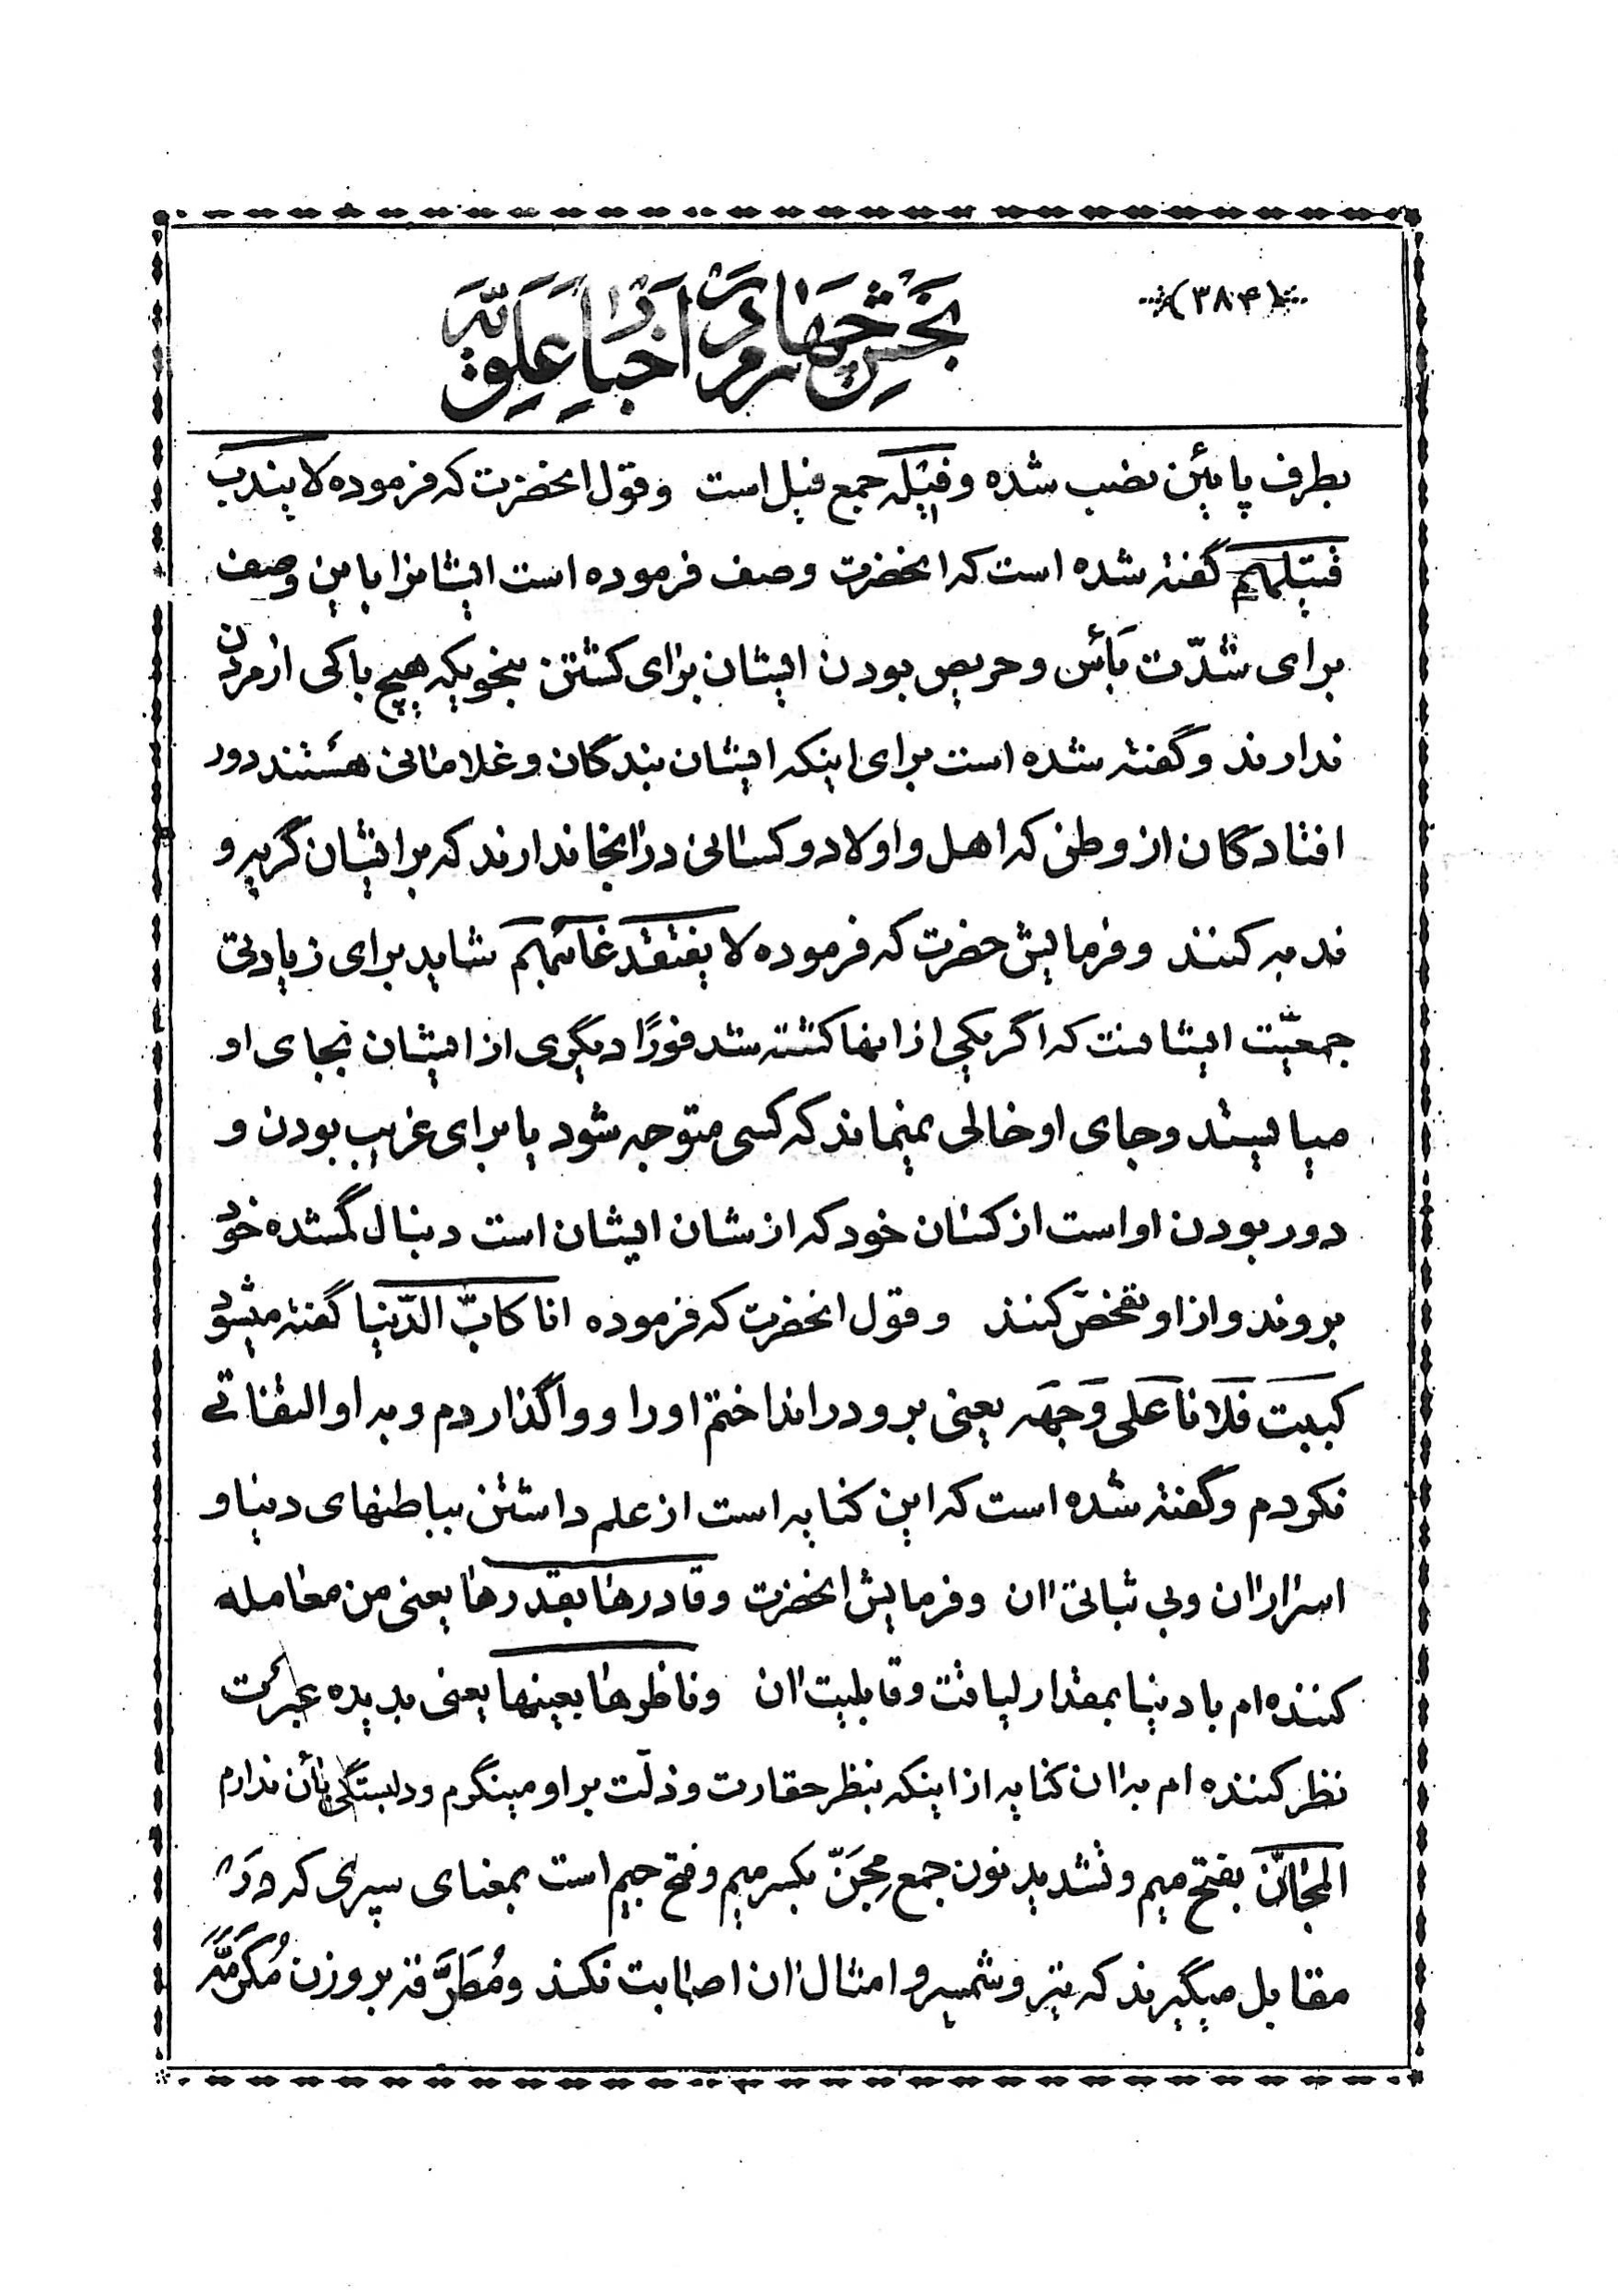 (۳۸۴)
بخش چهارم در اخبار علویّه
بطرف پایین نصب شده و فیله جمع فیل است و قول انحضرت که فرموده لا یندب
قتیلهم گفته شده است که انحضرت وصف فرموده است ایشانرا باین وصف
برای شدّت بأس و حریص بودن ایشان برای کشتن بنحویکه هیچ باکی از مردن
ندارند و گفته شده است برای اینکه ایشان بندگان و غلامانی هستند دور
افتادگان از وطن که اهل و اولاد و کسانی در انجا ندارند که بر ایشان گریه و
ندبه کنند و فرمایش حضرت که فرموده لا یفتقد غائبهم شاید برای زیادتی
جمعیّت ایشانست که اگر یکی از انها کشته شد فورًا دیگری از ایشان بجای او
میایستد و جای او خالی نمیماند که کسی متوجه شود یا برای غریب بودن و
دور بودن او است از کسان خود که از شان ایشان است دنبال گمشده خود
بروند و از او تفحّص کنند و قول انحضرت که فرموده انا کابّ الدّنیا گفته میشود
کببت فلانا علی وجهه یعنی برو در انداختم او را و واگذاردم و به او التفاتی
نکردم و گفته شده است که این کنایه است از علم داشتن بباطنهای دنیا و
اسرار ان و بی ثباتی ان و فرمایش انحضرت و قادرها بقدرها یعنی من معامله
کننده ام با دنیا بمقدار لیاقت و قابلیت ان و ناظرها بعینها یعنی بدیده عبرت
نظر کننده ام به ان کنایه از اینکه بنظر حقارت و ذلّت بر او مینگرم و دلبستگی بأن ندارم
المجانّ بفتح میم و تشدید نون جمع مِجَنّ بکسر میم و فتح جیم است بمعنای سپری که در
مقابل میگیرند که تیر و شمشیر و امثال ان اصابت نکند و مُطَرَّقه بر وزن مُکَرَّمَه